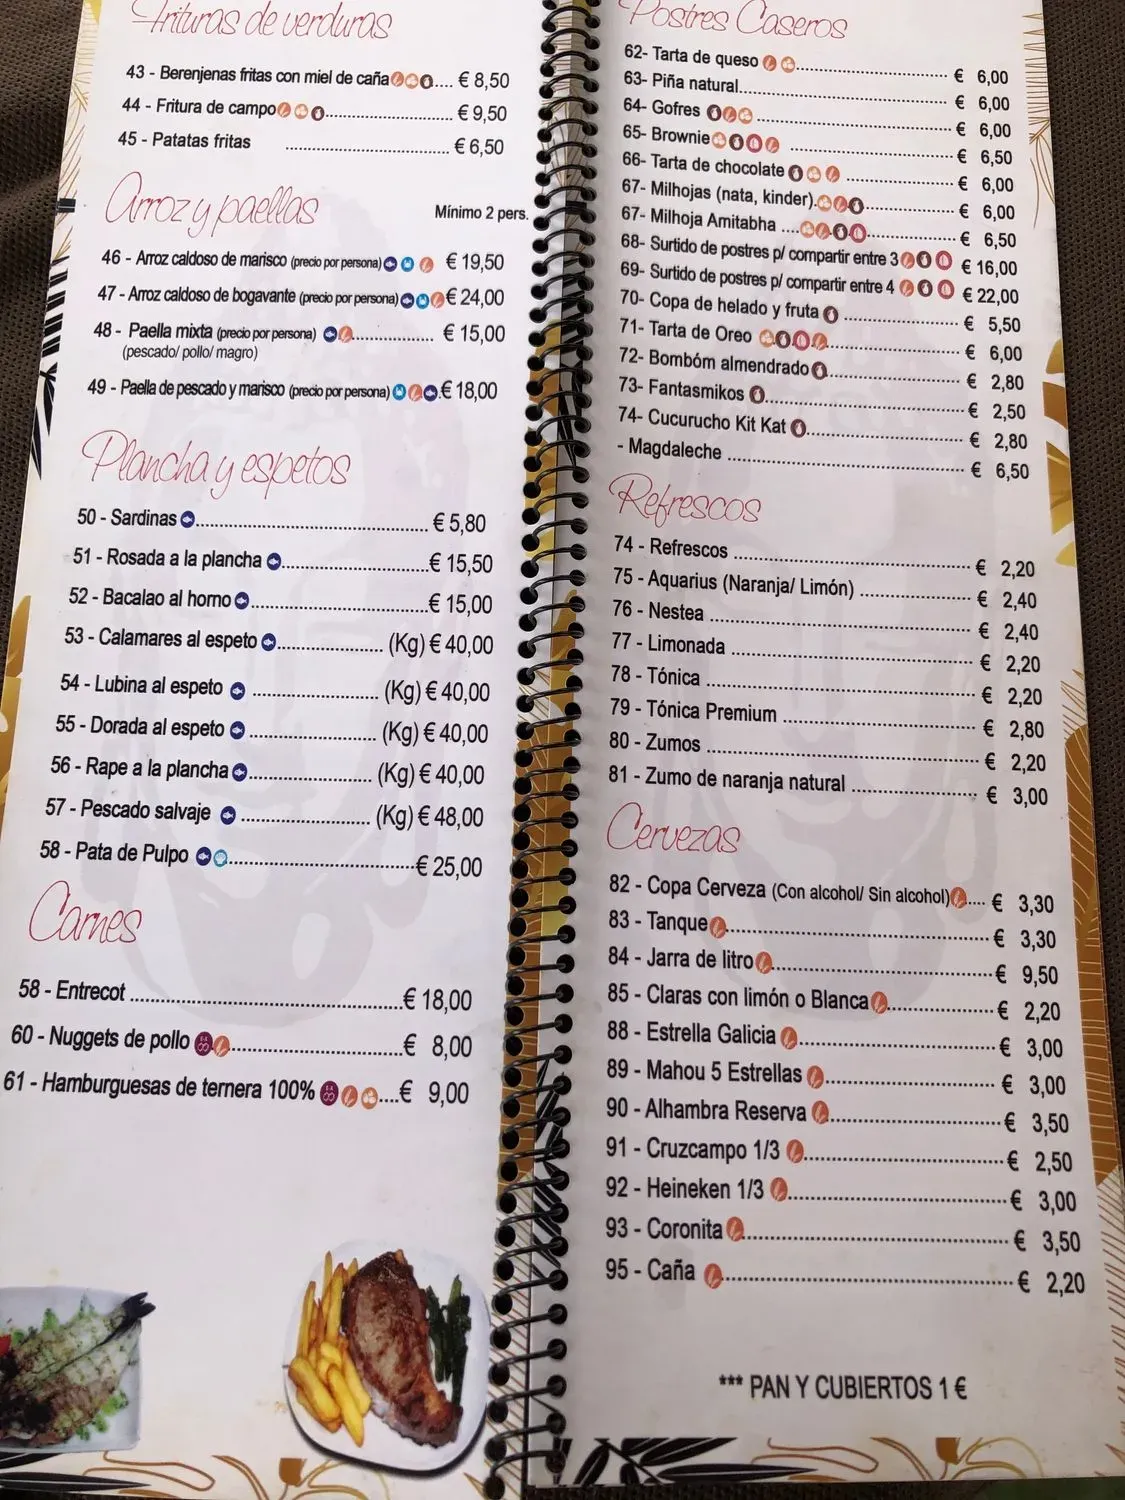 Frituras de verduras
43 - Berenjenas fritas con miel de caña.... € 8,50
44 - Fritura de campo............................ € 9,50
45 - Patatas fritas ................................... € 6,50
Arroz y paellas
Mínimo 2 pers.
46 - Arroz caldoso de marisco (precio por persona) € 19,50
47 - Arroz caldoso de bogavante (precio por persona) € 24,00
48 - Paella mixta (precio por persona) ................. € 15,00
(pescado/ pollo/ magro)
49 - Paella de pescado y marisco (precio por persona) .€ 18,00
Plancha y espetos
50 - Sardinas ................................................. € 5,80
51 - Rosada a la plancha ...............................€ 15,50
52 - Bacalao al horno ......................................€ 15,00
53 - Calamares al espeto ...................... (Kg) € 40,00
54 - Lubina al espeto ........................... (Kg) € 40,00
55 - Dorada al espeto ........................... (Kg) € 40,00
56 - Rape a la plancha .......................... (Kg) € 40,00
57 - Pescado salvaje ............................ (Kg) € 48,00
58 - Pata de Pulpo .......................................€ 25,00
Carnes
58 - Entrecot ..........................................................€ 18,00
60 - Nuggets de pollo .....................................€ 8,00
61 - Hamburguesas de ternera 100% ....€ 9,00
Postres Caseros
62- Tarta de queso ................................. € 6,00
63- Piña natural............................................. € 6,00
64- Gofres ............................................. € 6,00
65- Brownie ........................................... € 6,50
66- Tarta de chocolate ............................ € 6,00
67- Milhojas (nata, kinder). .................... € 6,00
67- Milhoja Amitabha .... ..................... € 6,50
68- Surtido de postres p/ compartir entre 3 € 16,00
69- Surtido de postres p/ compartir entre 4 € 22,00
70- Copa de helado y fruta ........................ € 5,50
71- Tarta de Oreo ................................... € 6,00
72- Bombóm almendrado ............................ € 2,80
73- Fantasmikos ........................................... € 2,50
74- Cucurucho Kit Kat .................................. € 2,80
- Magdaleche ................................................ € 6,50
Refrescos
74 - Refrescos ................................................ € 2,20
75 - Aquarius (Naranja/ Limón) ...................... € 2,40
76 - Nestea ................................................... € 2,40
77 - Limonada ................................................ € 2,20
78 - Tónica ..................................................... € 2,20
79 - Tónica Premium ....................................... € 2,80
80 - Zumos ..................................................... € 2,20
81 - Zumo de naranja natural ........................ € 3,00
Cervezas
82 - Copa Cerveza (Con alcohol/ Sin alcohol) .... € 3,30
83 - Tanque ..................................................... € 3,30
84 - Jarra de litro ............................................. € 9,50
85 - Claras con limón o Blanca ..................... € 2,20
88 - Estrella Galicia ........................................ € 3,00
89 - Mahou 5 Estrellas .................................... € 3,00
90 - Alhambra Reserva ................................... € 3,50
91 - Cruzcampo 1/3 ........................................ € 2,50
92 - Heineken 1/3 ............................................ € 3,00
93 - Coronita .................................................... € 3,50
95 - Caña ......................................................... € 2,20
*** PAN Y CUBIERTOS 1 €